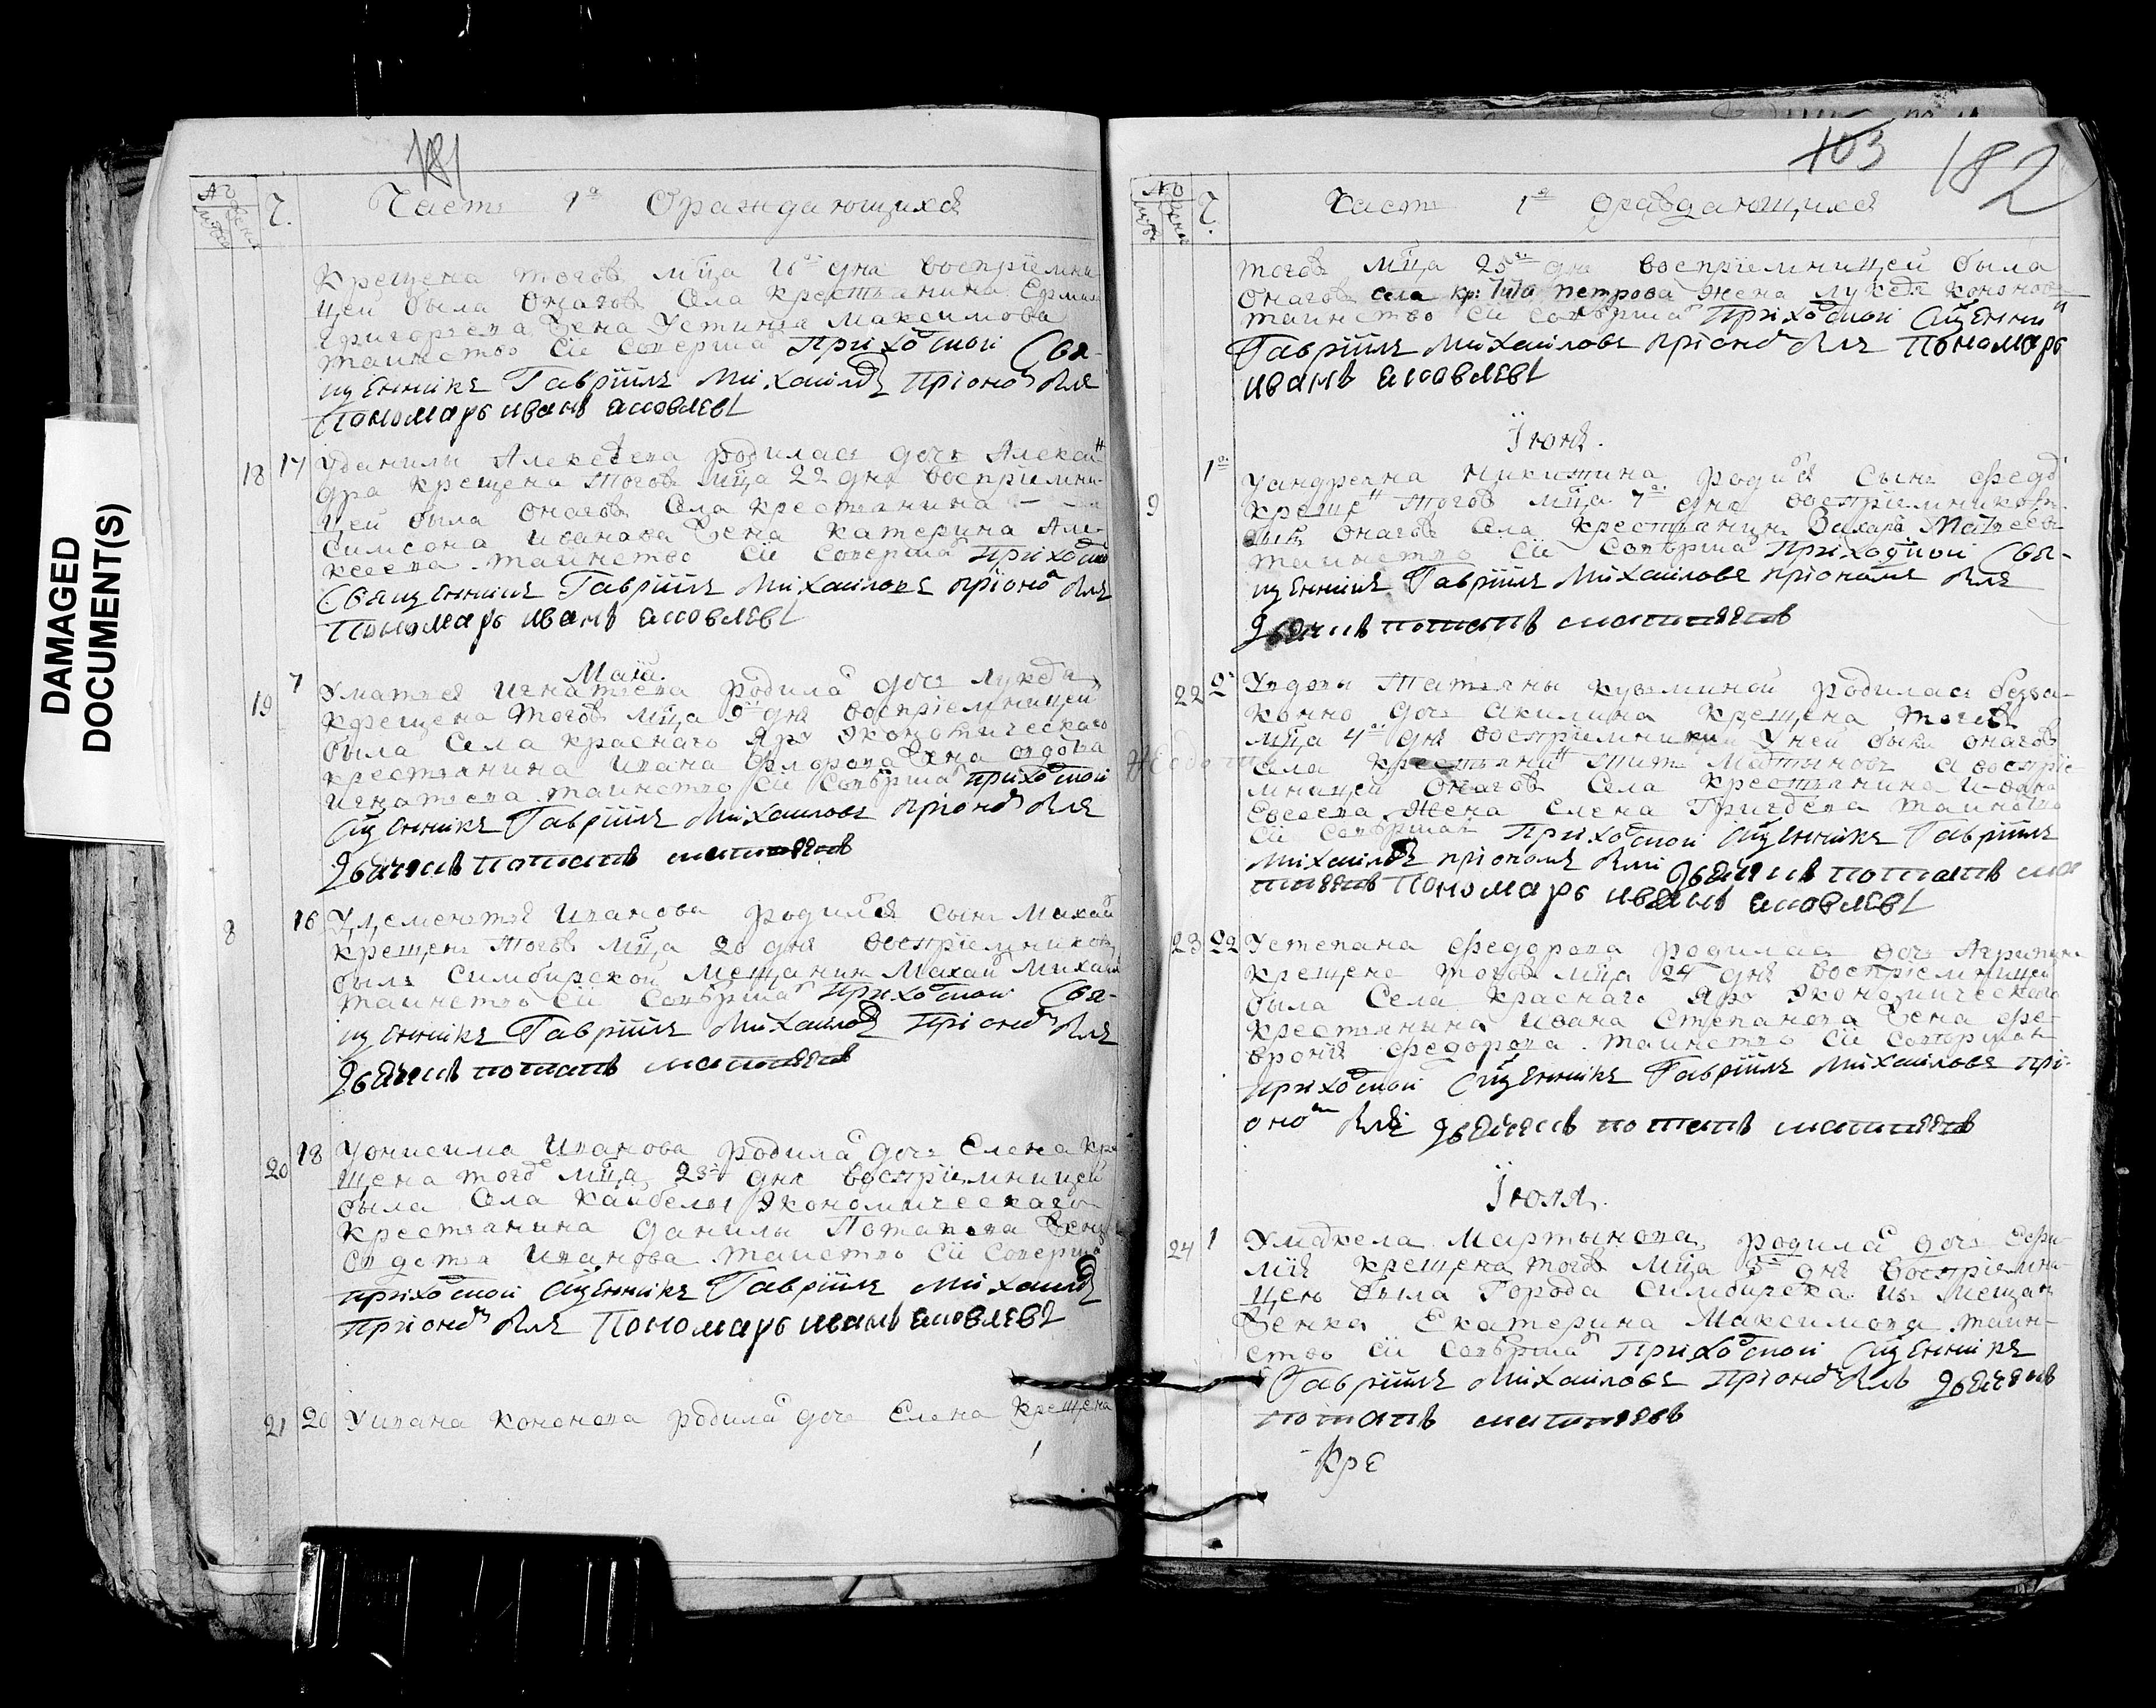 DAMAGED
DOCUMENT(S)
181
Ч.
Часть 1я Ораждающихся
Крещена тогожъ мца дня восприемни-
цей была онагожъ села крестьянина
Григорьева жена Устинья Максимова
таинство сiе соверша Приходской Свя-
щенникъ Гаврiилъ Михаиловъ при ономъ былъ
Пономарь иванъ яковлевъ
18 17 Уданилы Алексеева родилась дочь Алексан
дра крещена тогожъ мца 22 дня восприемни-
цей была онагожъ села крестьянина
Симеона Иванова жена катерина Але-
ксеева таинство сiе соверша приходской
Священникъ Гаврiилъ Михаиловъ при ономъ былъ
Пономарь иванъ яковлевъ
Маiя.
19 7 Уматвея игнатьева родила дочь лукея
крещена тогожъ мца 9 дня восприемницей
была села краснаго Яру экономическаго
крестьянина ивана Флорова жена
игнатьева таинство сiе соверша приходской
Сщенникъ Гаврiилъ Михаиловъ при ономъ былъ
дьячекъ потапъ
8 16 Уклементья Иванова родился сынъ Михаи
крещенъ тогожъ мца 20 дня восприемникомъ
былъ Симбирской мещанин Михаи Михаи
таинство сiе соверша приходской Свя-
щенникъ Гаврiилъ Михаиловъ при ономъ былъ
дьячекъ потапъ
20 18 Уонисима Иванова родила дочь Елена кре
щена тогожъ мца 23 дня восприемницей
была села кайбелы экономическаго
крестьянина данилы Потапова жена
Иванова таинство сiе соверша
приходской Сщенникъ Гаврiилъ Михаиловъ
при ономъ былъ Пономарь иванъ яковлевъ
21 20 Уивана кононова родила дочь Елена крещена
103 182
Ч.
Часть 1я Ораждающихся
тогожъ мца 25 дня восприемницей была
онагожъ села кр: Тита петрова жена лукея кононова
таинство сiе соверша Приходской Сщенник
Гаврiилъ Михаиловъ при ономъ былъ Пономарь
иванъ яковлевъ
Iюня.
9 1 Уандреяна никитина родися сынъ Федо
крещен тогожъ мца 7 дня восприемникомъ
былъ онагожъ села крестьянинъ Захаръ Матвеевъ
таинство сiе соверша Приходской Свя-
щенникъ Гаврiилъ Михаиловъ при ономъ былъ
дьячекъ потапъ
22 2 Увдовы Татьяны кузминой родилась безза-
конно дочь акилина крещена тогожъ
мца 4 дня восприемники у ней были онагожъ
села крестьянин Титъ Мартыновъ а восприе-
мницей онагожъ села крестьянина Ивана
Евсеева жена Елена Григорьева таинство
сiе совершалъ Приходской Сщенникъ Гаврiилъ
Михаиловъ при ономъ были дьячекъ потапъ
Пономарь иванъ яковлевъ
23 22 Устепана Федорова родилась дочь Агрипина
крещена тогожъ мца 24 дня восприемницей
была села краснаго Яру экономическаго
крестьянина ивана Степанова жена Фе-
вронiя Федорова таинство сiе совершалъ
приходской Сщенникъ Гаврiилъ Михаиловъ при
ономъ былъ дьячекъ потапъ
Iюля.
24 1 Умаркела Мартынова родила дочь Ефи-
мiя крещена тогожъ мца 3 дня восприемни-
цею была города Симбирска изъ мещан
женка Екатерина Максимова таин-
ство сiе соверша приходской Сщенникъ
Гаврiилъ Михаиловъ при ономъ былъ дьячекъ
потапъ
Кре